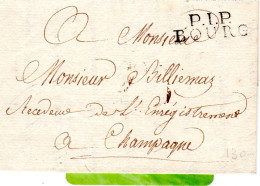 A Monsieur
P.1.P.
BOURG
Monsieur Billiemaz
Receveur de L'Enregistrement
a Champagne